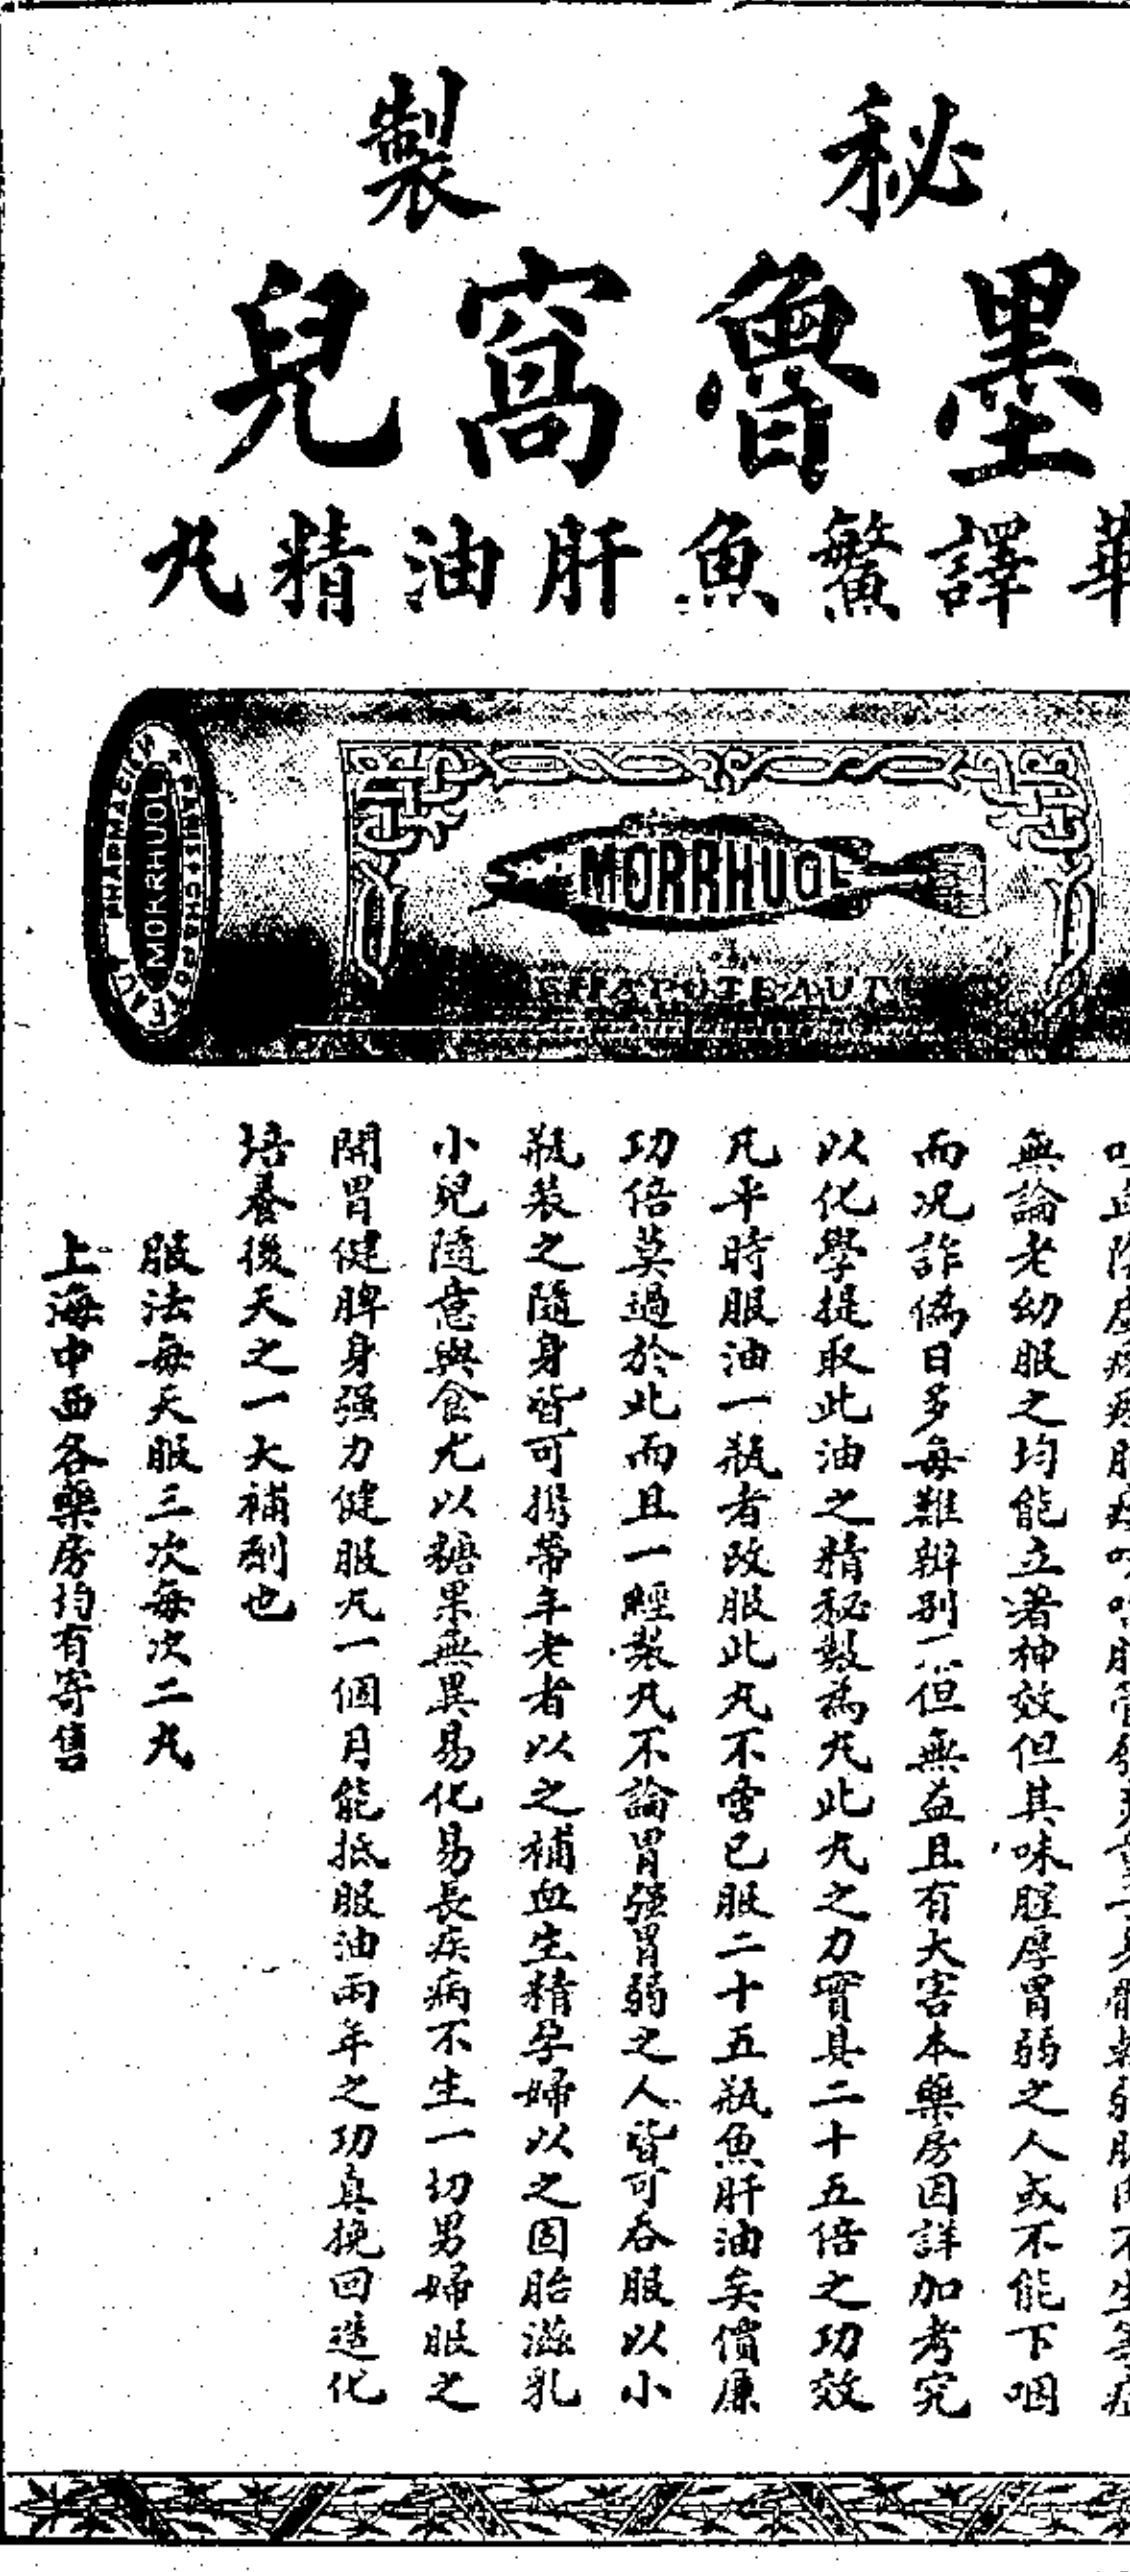 秘製
墨魯窩兒
譯鰵魚肝油精丸
PHARMACIEN ★ PARIS ★ CHAPOTEAUT
MORRHUOL
MORRHUOL
CHAPOTEAUT
無論老幼服之均能立著神效但其味腥厚胃弱之人或不能下咽
而况詐偽日多每難辦别不但無益且有大害本藥房因詳加考究
以化學提取此油之精秘製為丸此丸之力實具二十五倍之功效
凡平時服油一瓶者改服此丸不啻已服二十五瓶魚肝油矣價廉
功倍莫過於此而且一經製丸不論胃强胃弱之人皆可吞服以小
瓶裝之隨身皆可攜帶年老者以之補血生精孕婦以之固胎滋乳
小兒隨意與食尤以糖果無異易化易長疾病不生一切男婦服之
開胃健脾身强力健服丸一個月能抵服油兩年之功真挽回造化
培養後天之一大補劑也
服法每天服三次每次二丸
上海中西各藥房均有寄售